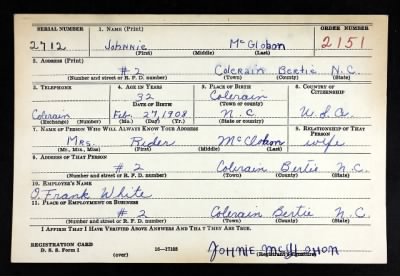 SERIAL NUMBER 1. NAME (Print) ORDER NUMBER
2712 Johnnie McGlohon 2151
(First) (Middle) (Last)
2. ADDRESS (Print)
#2 Colerain Bertie N.C.
(Number and street or R. F. D. number) (Town) (County) (State)
3. TELEPHONE 4. AGE IN YEARS 5. PLACE OF BIRTH 6. COUNTRY OF CITIZENSHIP
32 Colerain
DATE OF BIRTH (Town or county)
Colerain Feb. 27, 1908 N.C. U.S.A.
(Exchange) (Number) (Mo.) (Day) (Yr.) (State or country)
7. NAME OF PERSON WHO WILL ALWAYS KNOW YOUR ADDRESS 8. RELATIONSHIP OF THAT PERSON
Mrs. Rider McGlohon wife
(Mr., Mrs., Miss) (First) (Middle) (Last)
9. ADDRESS OF THAT PERSON
#2 Colerain Bertie N.C.
(Number and street or R. F. D. number) (Town) (County) (State)
10. EMPLOYER'S NAME
O. Frank White
11. PLACE OF EMPLOYMENT OR BUSINESS
#2 Colerain Bertie N.C.
(Number and street or R. F. D. number) (Town) (County) (State)
I AFFIRM THAT I HAVE VERIFIED ABOVE ANSWERS AND THAT THEY ARE TRUE.
REGISTRATION CARD
D. S. S. Form 1 (over) 16—17105 (Registrant's signature)